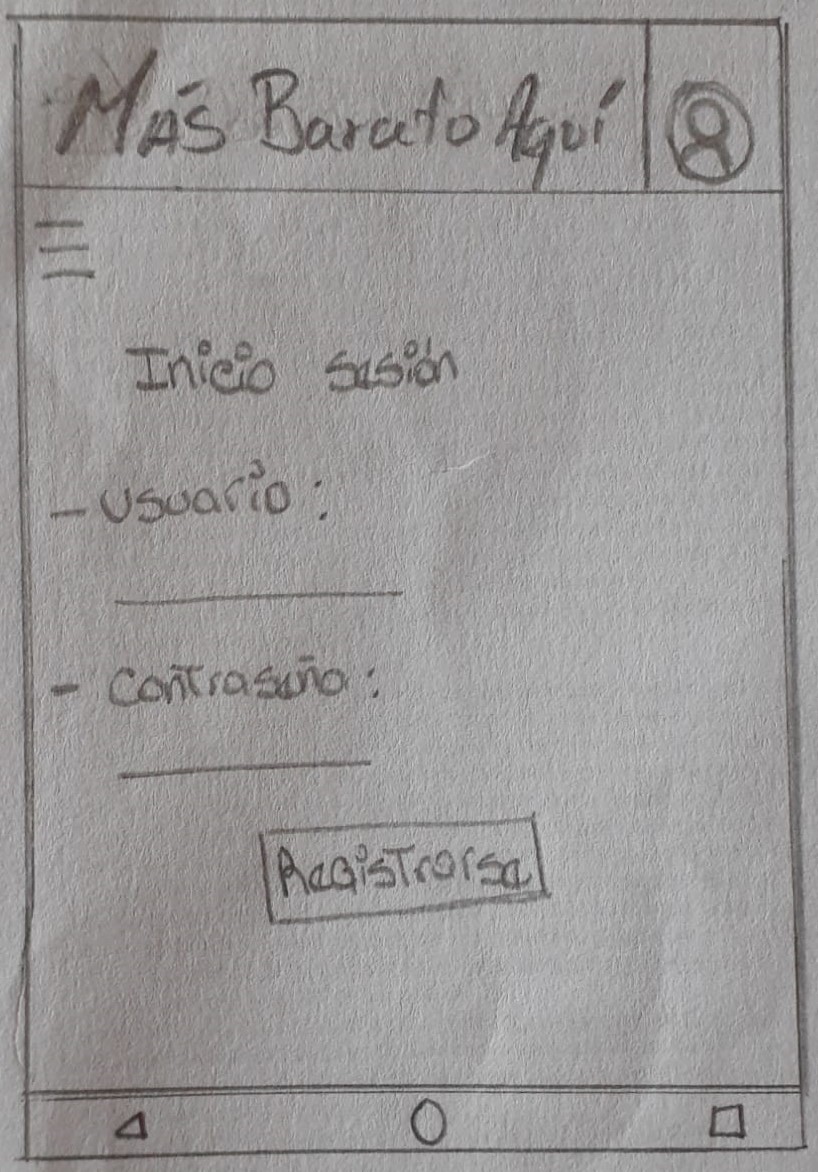 MÁS Barato Aquí
Inicio sesión
- Usuario:
- Contraseña:
Registrarse